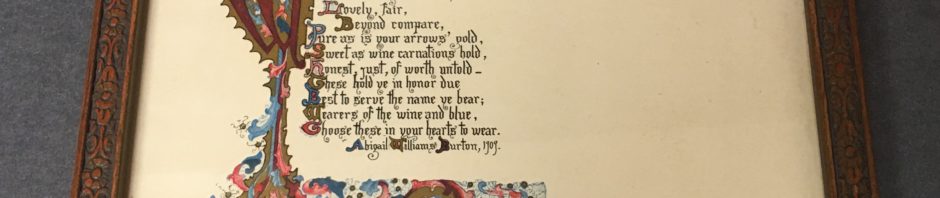 Lovely, fair,
Beyond compare,
Pure as is your arrows' gold,
Sweet as wine carnations hold,
Honest, just, of worth untold–
These hold ye in honor due
Best to serve the name ye bear;
Wearers of the wine and blue,
Choose these in your hearts to wear.
Abigail Williams Burton, 1909.